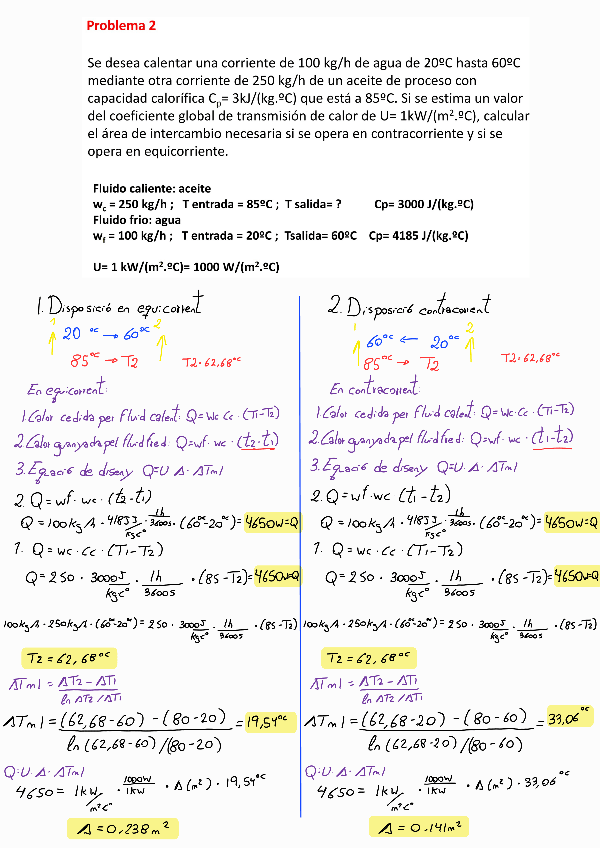 Problema 2
Se desea calentar una corriente de 100 kg/h de agua de 20ºC hasta 60ºC
mediante otra corriente de 250 kg/h de un aceite de proceso con
capacidad calorífica Cp= 3kJ/(kg.ºC) que está a 85ºC. Si se estima un valor
del coeficiente global de transmisión de calor de U= 1kW/(m².ºC), calcular
el área de intercambio necesaria si se opera en contracorriente y si se
opera en equicorriente.
Fluido caliente: aceite
wc = 250 kg/h ; T entrada = 85ºC ; T salida= ? Cp= 3000 J/(kg.ºC)
Fluido frio: agua
wf = 100 kg/h ; T entrada = 20ºC ; Tsalida= 60ºC Cp= 4185 J/(kg.ºC)
U= 1 kW/(m².ºC)= 1000 W/(m².ºC)
1. Disposició en equicorrent
1 2
20 ºC → 60ºC
85ºC → T2
T2=62,68ºC
En equicorrent:
1. Calor cedida per fluid calent: Q=Wc·Cc·(T1-T2)
2. Calor guanyada pel fluid fred: Q=wf·wc·(t2-t1)
3. Equació de diseny Q=U·A·ΔTml
2. Q=wf·wc·(t2-t1)
Q=100kg/h·4185J/kgCº·1h/3600s·(60º-20º)=4650W=Q
1. Q=wc·Cc·(T1-T2)
Q=250·3000J/kgCº·1h/3600s·(85-T2)=4650W=Q
100kg/h·250kg/h·(60º-20º)=250·3000J/kgCº·1h/3600s·(85-T2)
T2=62,68ºC
ΔTml=ΔT2-ΔT1/ln ΔT2/ΔT1
ΔTml=(62,68-60)-(80-20)/ln(62,68-60)/(80-20)=19,54ºC
Q=U·A·ΔTml
4650=1kW/m²Cº·1000W/1kW·A(m²)·19,54ºC
A=0,238m²
2. Disposició contracorrent
1 2
60ºC ← 20ºC
85ºC → T2
T2=62,68ºC
En contracorrent:
1. Calor cedida per fluid calent: Q=Wc·Cc·(T1-T2)
2. Calor guanyada pel fluid fred: Q=wf·wc·(t1-t2)
3. Equació de diseny Q=U·A·ΔTml
2. Q=wf·wc(t1-t2)
Q=100kg/h·4185J/kgCº·1h/3600s·(60º-20º)=4650W=Q
1. Q=wc·Cc·(T1-T2)
Q=250·3000J/kgCº·1h/3600s·(85-T2)=4650W=Q
100kg/h·250kg/h·(60º-20º)=250·3000J/kgCº·1h/3600s·(85-T2)
T2=62,68ºC
ΔTml=ΔT2-ΔT1/ln ΔT2/ΔT1
ΔTml=(62,68-20)-(80-60)/ln(62,68-20)/(80-60)=33,06ºC
Q=U·A·ΔTml
4650=1kW/m²Cº·1000W/1kW·A(m²)·33,06ºC
A=0,141m²